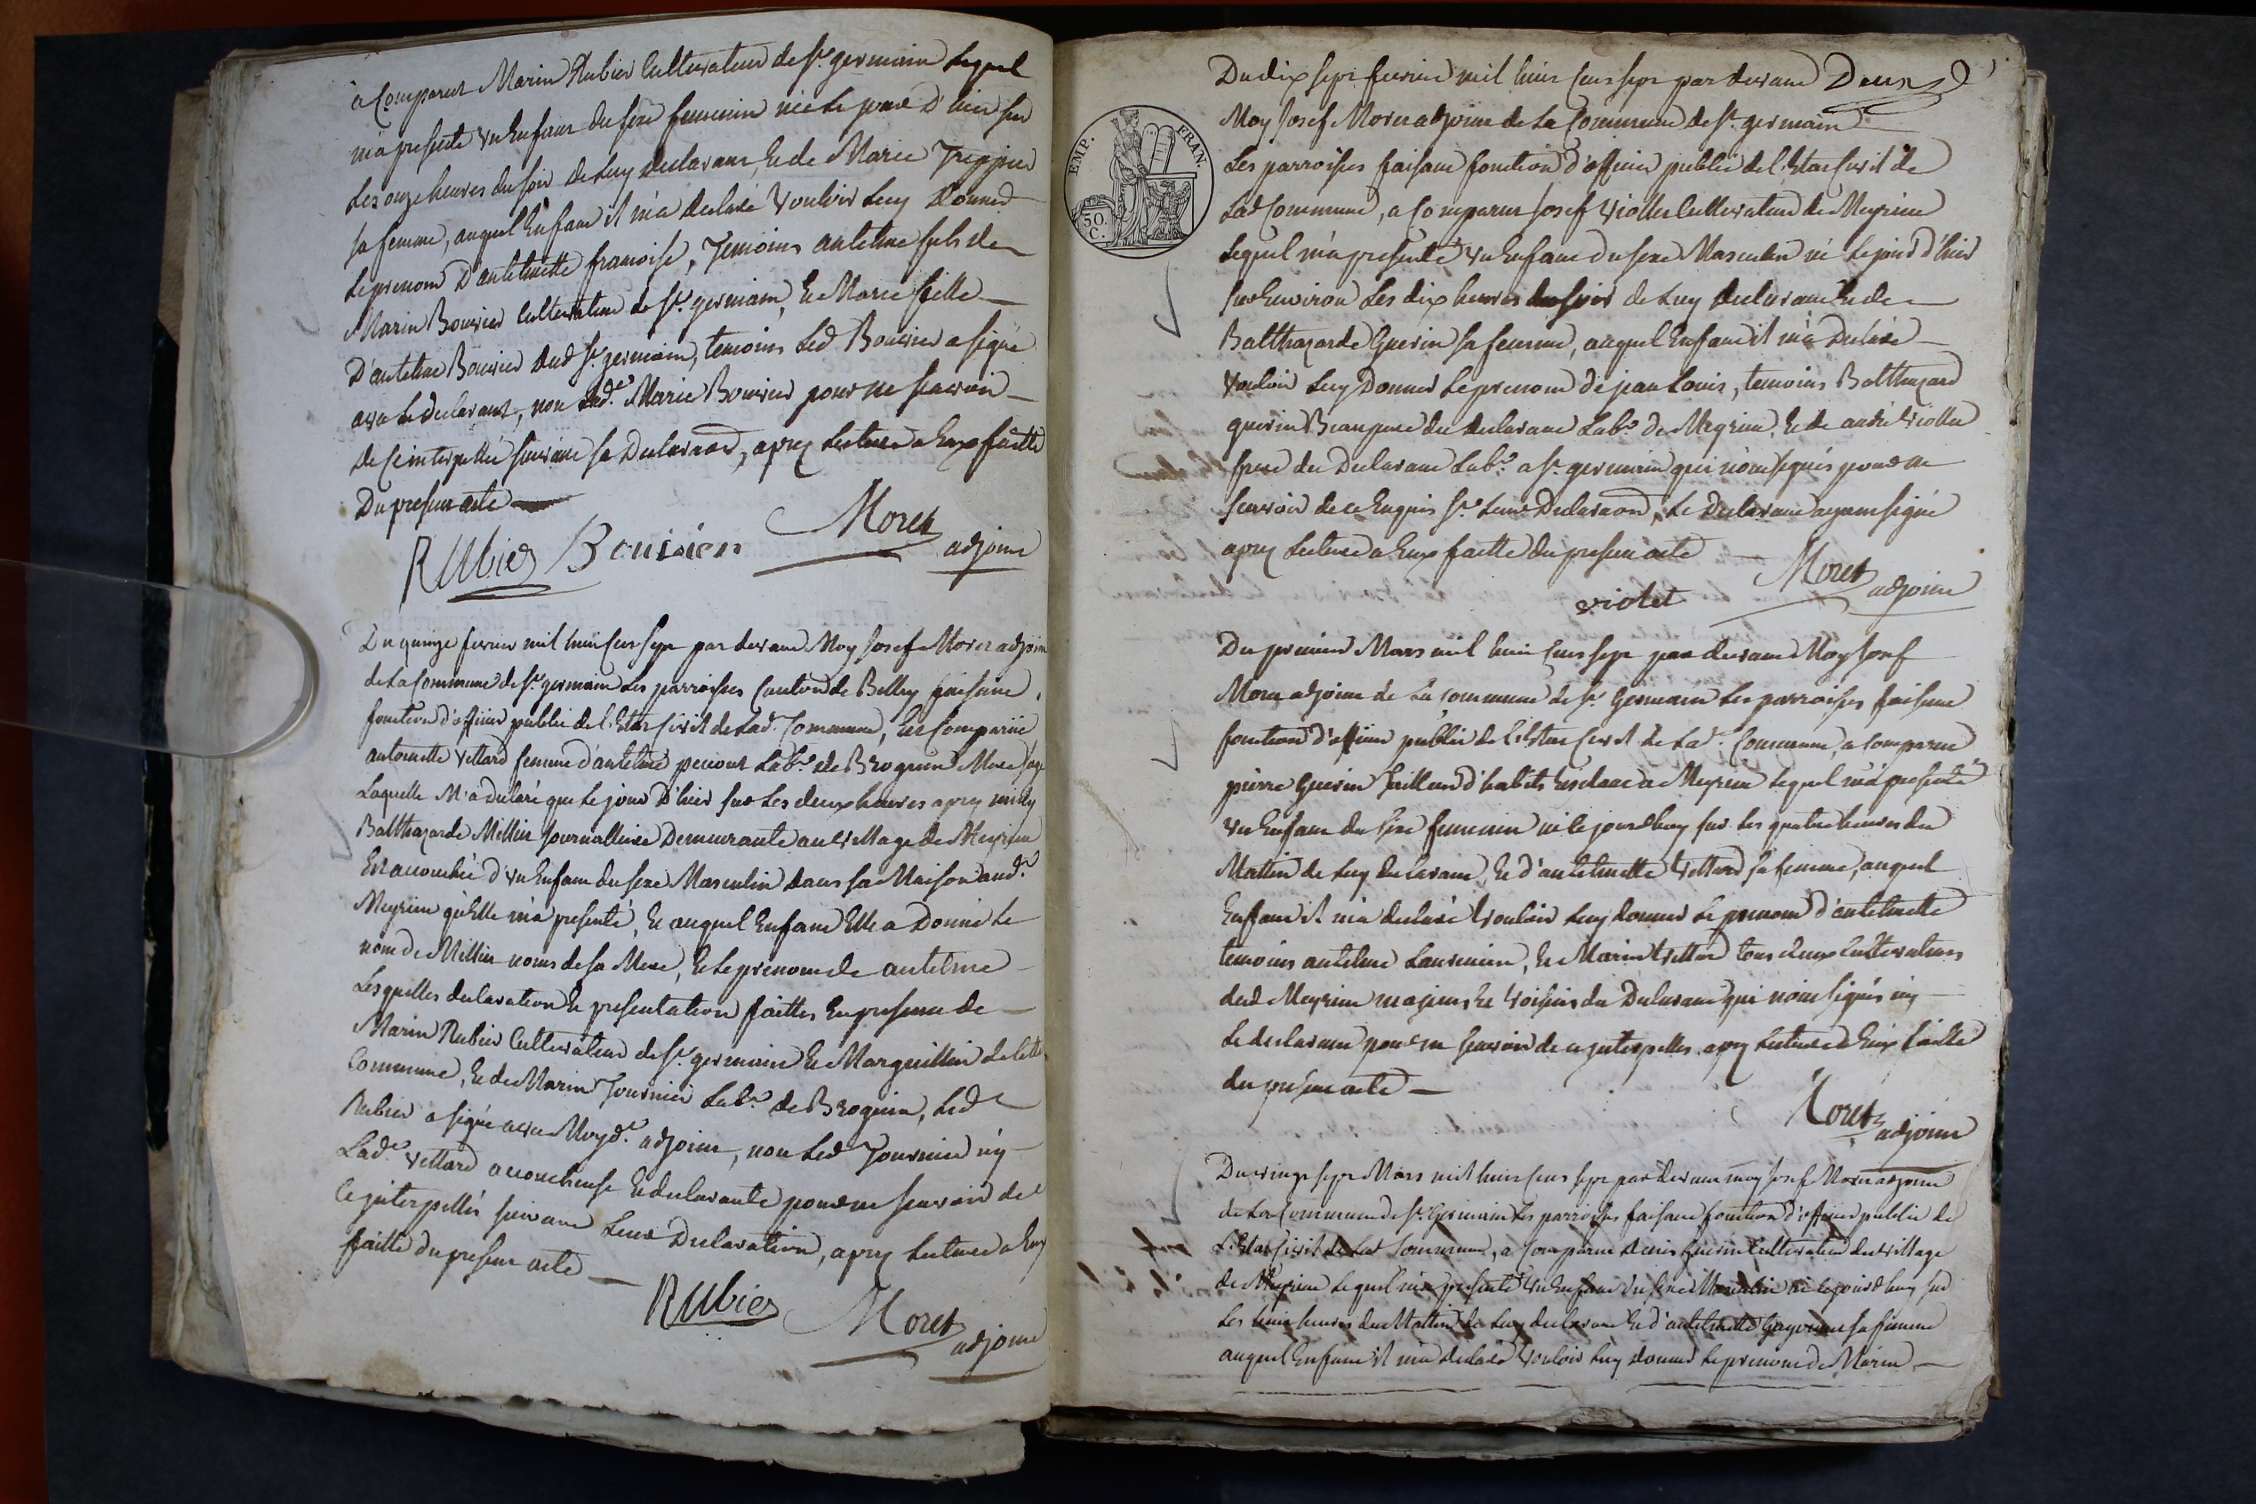 a Comparut Marin Rubier Cultivateur de St. germain Lequel
m'a presenté un Enfant du sexe feminin née Le jour D'hier sur
Les onze heures du soir de Luy declarant, Et de Marie
sa femme, auquel Enfant il m'a declaré Vouloir Luy Donner
Le prenom D'antelmette francoise, Temoins antelme fils de
Marin Bouvier Cultivateur de St. germain, Et Marie fille
D'antelme Bouvier dud St. germain, temoins Led Bouvier a signé
avec Le declarant, non Lade. Marie Bouvier pour ne scavoir
de ce interpellée suivant sa Declaraon, aprez Lecture a Eux faitte
Du present acte
Rubier Bouvier Moret adjoint
Du quinze fevrier mil huit Cens sept par devant Moy Josef Moret adjoint
de La Commune de St. germain Les parroisses Canton de Belley faisant
fonction d'officier public de L'Etat Civil de Lad. Commune, Est Comparüe
antoinette Vettard femme d'antelme Labr. de Brognin Mere sage
Laquelle M'a declaré que Le jour D'hier sur Les deux heures aprez midy
Balthazarde Millin journalliere Demeurante au village de Meyrieu
Est accouchée d'un Enfant du sexe Masculin dans sa Maison aud.
Meyrieu qu'Elle m'a presenté, Et auquel Enfant Elle a Donné Le
nom de Millin noms de sa Mere, Et Le prenom de antelme
Lesquelles declaration Et presentation faittes En presence de
Marin Rubier Cultivateur de St. germain Et Marguillier de cette
Commune, Et de Marin Fournier Labr. de Brognin, Led
Rubier a signé avec Moyd. adjoint, non Led Fournier ny
Lade. Vettard accoucheuse Et declarante pour ne scavoir de
Ce interpellés suivant Leur Declaration, aprez Lecture a Eux
faitte du present acte
Rubier Moret
adjoint
Du dix sept fevrier mil huit Cens sept par devant Deux
Moy Josef Moret adjoint de La Commune de St. germain
EMP. FRAN.
50 C.
Les parroisses faisant fonction d'officier public de L'Etat Civil de
Lad Commune, a Comparut Josef Viollet Cultivateur de Meyrieu
Lequel m'a presenté un Enfant du sexe Masculin né Le jour d'hier
sur Environ Les dix heures du soir de Luy declarant Et de
Balthazarde Guerin sa femme, auquel Enfant il m'a Declaré
Vouloir Luy Donner Le prenom de jean Louis, temoins Balthazard
guerin Beaupere du declarant Labr. de Meyrieu, Et de andré Viollet
frere du Declarant Labr. a St. germain qui n'ont signés pour ne
scavoir de ce Enquis St. Leur Declaraon, Le Declarant ayant signé
aprez Lecture a Eux faitte du present acte
violet Moret adjoint
Du premier Mars mil huit Cens sept par devant Moy Josef
Moret adjoint de La Commune de St. Germain Les parroisses faisant
fonction d'officier public de L'Etat Civil de Lad. Commune, a Comparut
pierre Guerin Tailleur d'habits a Meyrieu Lequel m'a presenté
un Enfant du sexe feminin né Le jourdhuy sur Les quatre heures du
Mattin de Luy declarant, Et d'antelmette Vettard sa femme, auquel
Enfant il m'a declaré Vouloir Luy donner Le prenom d'antelmette
temoins antelme, Et Marin Vettard tous deux Cultivateurs
dud Meyrieu majeurs Et Voisins du Declarant qui n'ont signés ny
Le declarant pour ne scavoir de ce interpellés aprez Lecture a Eux faitte
du present acte
Moret adjoint
Du vingt sept Mars mil huit Cens sept par devant moy Josef Moret adjoint
de La Commune de St. Germain Les parroisses faisant fonction d'officier public de
L'Etat Civil de Lad Commune, a Comparut Guerin Cultivateur du Village
de Meyrieu Lequel m'a presenté un Enfant du sexe Masculin né Le jourdhuy sur
Les heures du Mattin de Luy declarant Et d'antelmette sa femme
auquel Enfant il m'a declaré Vouloir Luy donner Le prenom de Marin